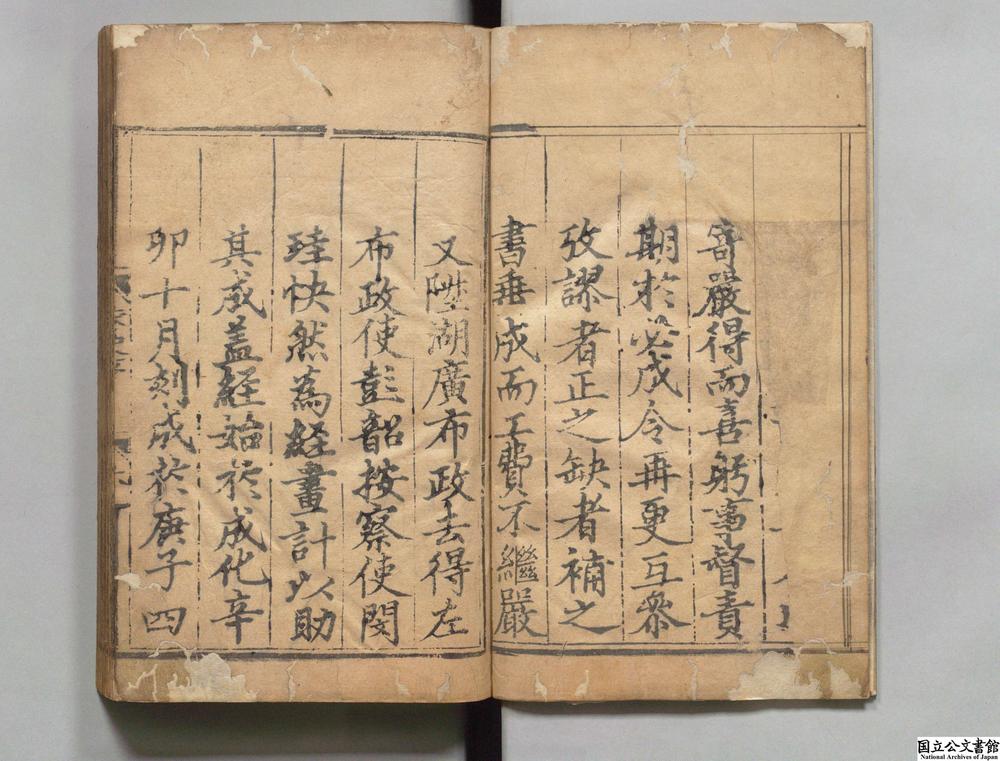 寄嚴得而喜躬事督責
期於必成令再更互叅
攷謬者正之缺者補之
書垂成而工費不繼嚴
又陞湖廣布政去得左
布政使彭韶按察使閔
珪快然爲經畫計以助
其成盖經始於成化辛
卯十月刻成於庚子四
国立公文書館
National Archives of Japan